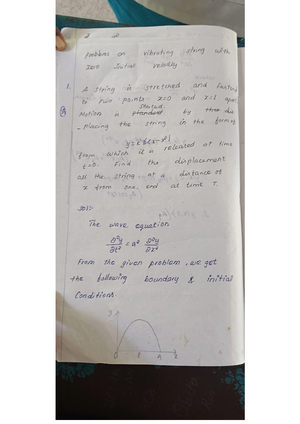 Problems on vibrating string with
zero initial velocity
1. A string is stretched and fastend
to two points x=0 and x=l apart
Motion is started by
-placing the string in the form of
from which it is released at time
t=0. Find the displacement
at a distance of
x from one end at time T.
Sol:-
The wave equation
∂²y/∂t² = a² ∂²y/∂x²
From the given problem, we get
the following boundary & initial
Conditions
y
0
x